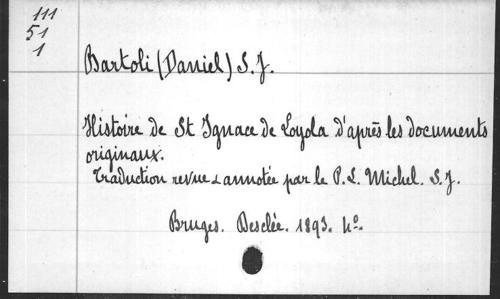 111
51
1
Bartoli (Daniel) S. J.
Histoire de St Ignace de Loyola d'après les documents
originaux.
Traduction revue & annotée par le P. L. Michel. S. J.
Bruges. Desclée. 1893. 4º.